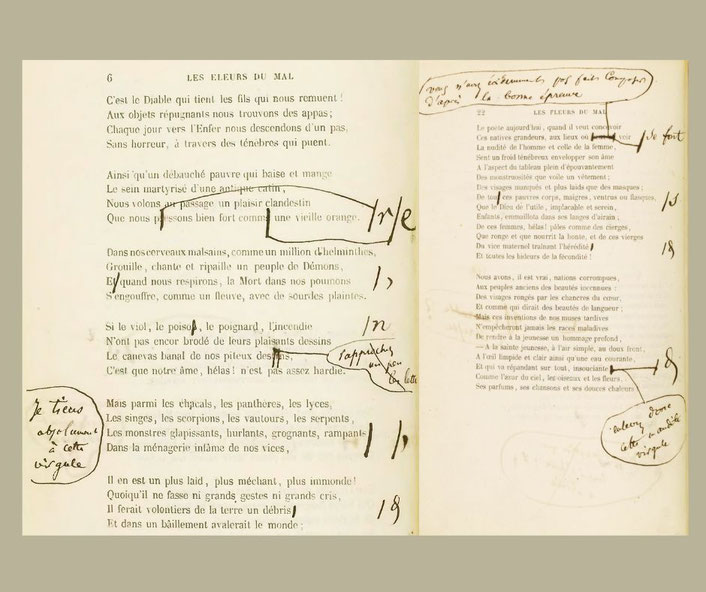 6 LES FLEURS DU MAL
C'est le Diable qui tient les fils qui nous remuent !
Aux objets répugnants nous trouvons des appas ;
Chaque jour vers l'Enfer nous descendons d'un pas,
Sans horreur, à travers des ténèbres qui puent.
Ainsi qu'un débauché pauvre qui baise et mange
Le sein martyrisé d'une antique catin,
Nous volons au passage un plaisir clandestin
Que nous pressons bien fort comme une vieille orange.
r/e
Dans nos cerveaux malsains, comme un million d'helminthes,
Grouille, chante et ripaille un peuple de Démons,
Et quand nous respirons, la Mort dans nos poumons
S'engouffre, comme un fleuve, avec de sourdes plaintes.
Si le viol, le poison, le poignard, l'incendie
n
N'ont pas encor brodé de leurs plaisants dessins
Le canevas banal de nos piteux destins,
C'est que notre âme, hélas ! n'est pas assez hardie.
rapprochez
un peu
les lettres
Mais parmi les chacals, les panthères, les lyces,
Les singes, les scorpions, les vautours, les serpents,
Les monstres glapissants, hurlants, grognants, rampants
Dans la ménagerie infâme de nos vices,
Je tiens
absolument
à cette
virgule
Il en est un plus laid, plus méchant, plus immonde !
Quoiqu'il ne fasse ni grands gestes ni grands cris,
Il ferait volontiers de la terre un débris
Et dans un bâillement avalerait le monde ;
vous n'avez évidemment pas fait composer
d'après la bonne épreuve
22 LES FLEURS DU MAL
Le poëte aujourd'hui, quand il veut concevoir
Ces natives grandeurs, aux lieux où voir
se font
La nudité de l'homme et celle de la femme,
Sent un froid ténébreux envelopper son âme
A l'aspect du tableau plein d'épouvantement
Des monstruosités que voile un vêtement ;
Des visages manqués et plus laids que des masques ;
De tous ces pauvres corps, maigres, ventrus ou flasques,
Que le Dieu de l'utile, implacable et serein,
Enfants, emmaillota dans ses langes d'airain ;
De ces femmes, hélas ! pâles comme des cierges,
Que ronge et que nourrit la honte, et de ces vierges
Du vice maternel traînant l'hérédité
Et toutes les hideurs de la fécondité !
Nous avons, il est vrai, nations corrompues,
Aux peuples anciens des beautés inconnues :
Des visages rongés par les chancres du cœur,
Et comme qui dirait des beautés de langueur ;
Mais ces inventions de nos muses tardives
N'empêcheront jamais les races maladives
De rendre à la jeunesse un hommage profond,
— A la sainte jeunesse, à l'air simple, au doux front,
A l'œil limpide et clair ainsi qu'une eau courante,
Et qui va répandant sur tout, insouciante
Comme l'azur du ciel, les oiseaux et les fleurs,
Ses parfums, ses chansons et ses douces chaleurs
enlevez donc
cette maudite
virgule